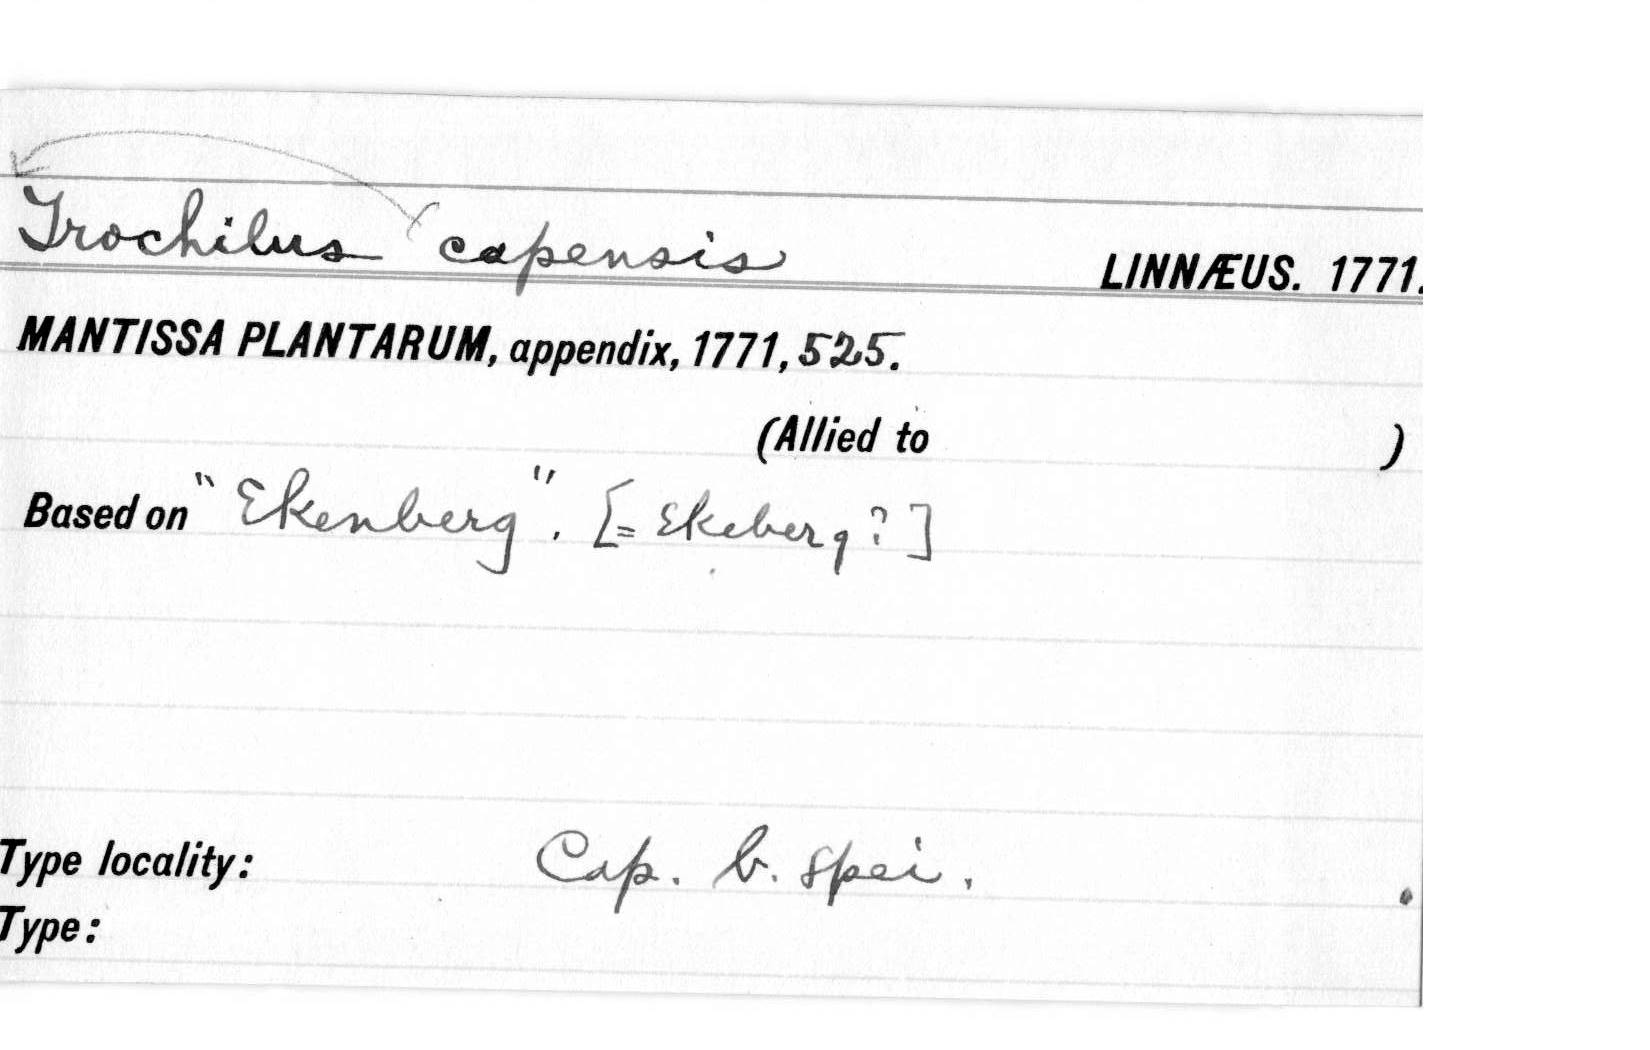 Trochilus capensis LINNÆUS. 1771.
MANTISSA PLANTARUM, appendix, 1771, 525.
(Allied to )
Based on "Ekenberg". [= Ekeberg?]
Type locality: Cap. b. spei.
Type: